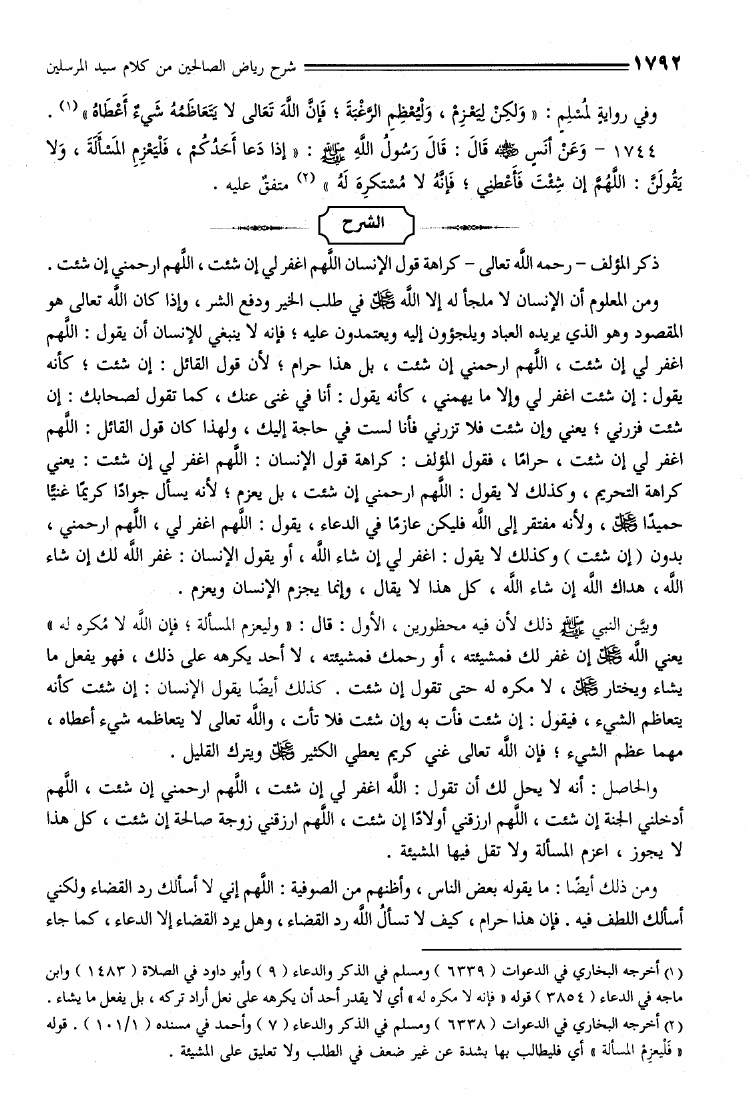 ١٧٩٢ شرح رياض الصالحين من كلام سيد المرسلين
وفي روايةٍ لمُسْلِمٍ : « وَلَكِنْ لِيَعْزِمْ ، وَلْيُعْظِمِ الرَّغْبَةَ ؛ فَإِنَّ اللَّهَ تَعَالى لَا يَتَعَاظَمُهُ شَيءٌ أَعْطَاهُ » (١) .
١٧٤٤ - وَعَنْ أَنَسٍ رضي الله عنه قَالَ : قَالَ رَسُولُ اللَّهِ ﷺ : « إذا دَعا أَحَدُكُمْ ، فَلْيَعْزِمِ المَسْأَلَةَ ، وَلا
يَقُولَنَّ : اللَّهُمَّ إِن شِئْتَ فَأَعْطِني ؛ فَإِنَّهُ لا مُسْتَكرِهَ لَهُ » (٢) متفقٌ عليه .
الشرح
ذكر المؤلف – رحمه اللَّه تعالى – كراهة قول الإنسان اللَّهم اغفر لي إن شئت ، اللَّهم ارحمني إن شئت .
ومن المعلوم أن الإنسان لا ملجأ له إلا اللَّه عز وجل في طلب الخير ودفع الشر ، وإذا كان اللَّه تعالى هو
المقصود وهو الذي يريده العباد ويلجؤون إليه ويعتمدون عليه ؛ فإنه لا ينبغي للإنسان أن يقول : اللَّهم
اغفر لي إن شئت ، اللَّهم ارحمني إن شئت ، بل هذا حرام ؛ لأن قول القائل : إن شئت ؛ كأنه
يقول : إن شئت اغفر لي وإلا ما يهمني ، كأنه يقول : أنا في غنى عنك ، كما تقول لصحابك : إن
شئت فزرني ؛ يعني وإن شئت فلا تزرني فأنا لست في حاجة إليك ، ولهذا كان قول القائل : اللَّهم
اغفر لي إن شئت ، حرامًا ، فقول المؤلف : كراهة قول الإنسان : اللَّهم اغفر لي إن شئت : يعني
كراهة التحريم ، وكذلك لا يقول : اللَّهم ارحمني إن شئت ، بل يعزم ؛ لأنه يسأل جوادًا كريمًا غنيًّا
حميدًا عز وجل ، ولأنه مفتقر إلى اللَّه فليكن عازمًا في الدعاء ، يقول : اللَّهم اغفر لي ، اللَّهم ارحمني ،
بدون ( إن شئت ) وكذلك لا يقول : اغفر لي إن شاء اللَّه ، أو يقول الإنسان : غفر اللَّه لك إن شاء
اللَّه ، هداك اللَّه إن شاء اللَّه ، كل هذا لا يقال ، وإنما يجزم الإنسان ويعزم .
وبيَّن النبي ﷺ ذلك لأن فيه محظورين ، الأول : قال : « وليعزم المسألة ؛ فإن اللَّه لا مُكره له »
يعني اللَّه عز وجل إن غفر لك فمشيئته ، أو رحمك فمشيئته ، لا أحد يكرهه على ذلك ، فهو يفعل ما
يشاء ويختار عز وجل ، لا مكره له حتى تقول إن شئت . كذلك أيضًا يقول الإنسان : إن شئت كأنه
يتعاظم الشيء ، فيقول : إن شئت فأت به وإن شئت فلا تأت ، واللَّه تعالى لا يتعاظمه شيء أعطاه ،
مهما عظم الشيء ؛ فإن اللَّه تعالى غني كريم يعطي الكثير عز وجل ويترك القليل .
والحاصل : أنه لا يحل لك أن تقول : اللَّه اغفر لي إن شئت ، اللَّهم ارحمني إن شئت ، اللَّهم
أدخلني الجنة إن شئت ، اللَّهم ارزقني أولادًا إن شئت ، اللَّهم ارزقني زوجة صالحة إن شئت ، كل هذا
لا يجوز ، اعزم المسألة ولا تقل فيها المشيئة .
ومن ذلك أيضًا : ما يقوله بعض الناس ، وأظنهم من الصوفية : اللَّهم إني لا أسألك رد القضاء ولكني
أسألك اللطف فيه . فإن هذا حرام ، كيف لا تسألُ اللَّه رد القضاء ، وهل يرد القضاء إلا الدعاء ، كما جاء
(١) أخرجه البخاري في الدعوات ( ٦٣٣٩ ) ومسلم في الذكر والدعاء ( ٩ ) وأبو داود في الصلاة ( ١٤٨٣ ) وابن
ماجه في الدعاء ( ٣٨٥٤ ) قوله « فإنه لا مكره له » أي لا يقدر أحد أن يكرهه على نعل أراد تركه ، بل يفعل ما يشاء .
(٢) أخرجه البخاري في الدعوات ( ٦٣٣٨ ) ومسلم في الذكر والدعاء ( ٧ ) وأحمد في مسنده ( ١٠١/١ ) . قوله
« فَلْيعزِمُ المسألة » أي فليطالب بها بشدة عن غير ضعف في الطلب ولا تعليق على المشيئة .